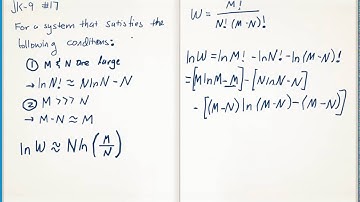 JK-9 #17
For a system that satisfies the
following conditions:
① M & N are large
→ ln N! ≈ N ln N - N
② M >>> N
→ M-N ≈ M
ln W ≈ N ln (M/N)
W = M! / N! (M-N)!
ln W = ln M! - ln N! - ln (M-N)!
= [M ln M - M] - [N ln N - N]
- [(M-N) ln (M-N) - (M-N)]